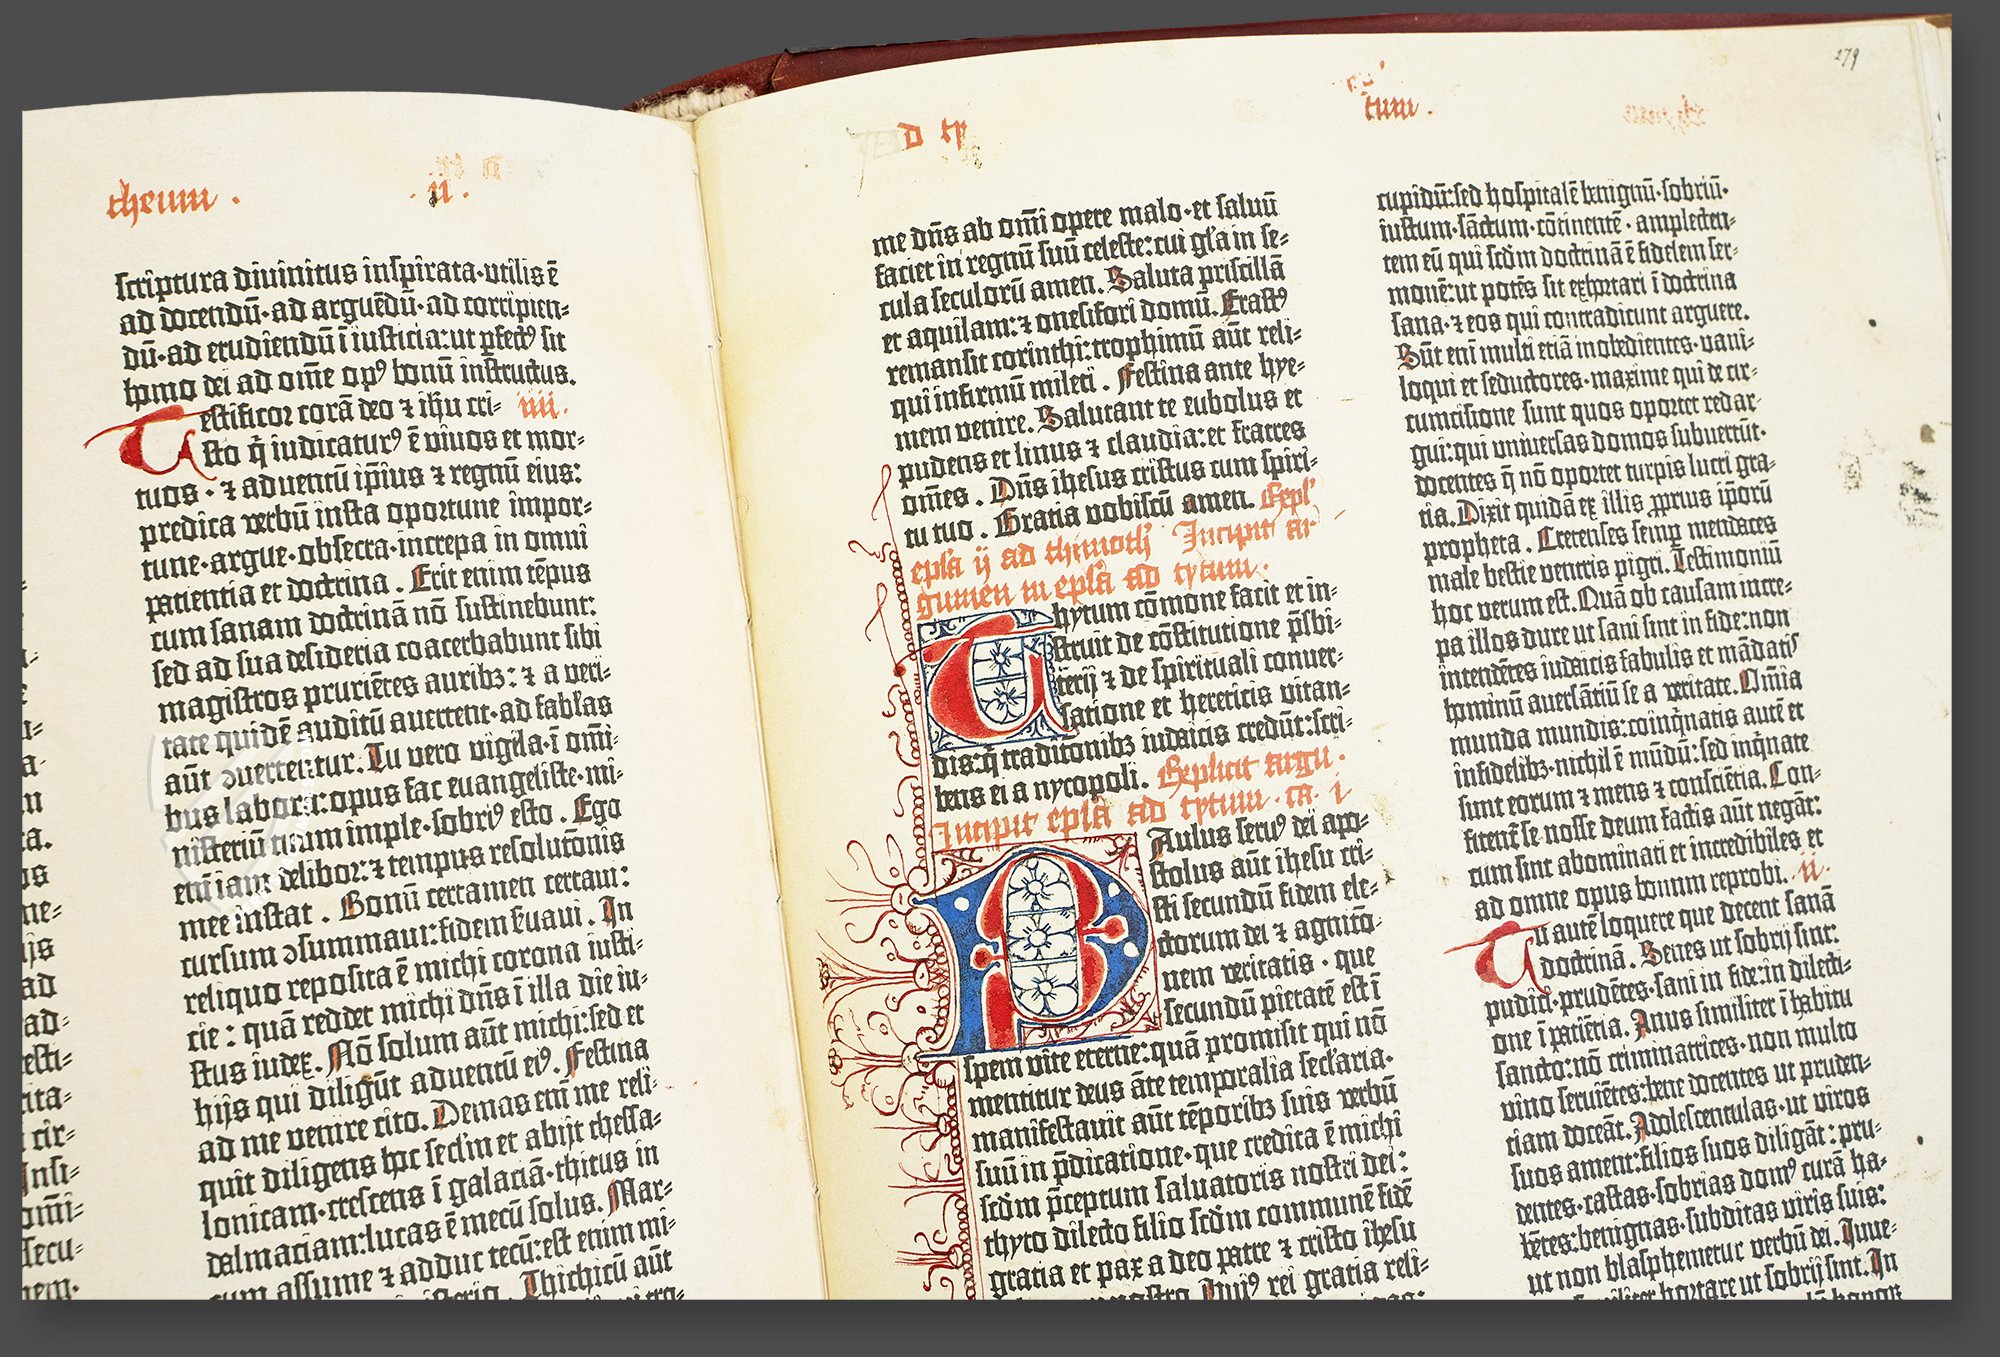 theum .
. ii .
scriptura diuinitus inspirata·utilis ē
ad docendū·ad arguēdū·ad corripien=
dū·ad erudiendū ī iusticia:ut pfectꝰ sit
homo dei ad omē opꝰ bonū instructus.
Testificor corā deo ⁊ ihū cri= iiii.
sto q̄ iudicaturꝰ ē viuos et mor=
tuos·⁊ aduentū ip̄ius ⁊ regnū eius:
predica verbū insta oportune impor=
tune·argue·obsecra·increpa in omni
patientia et doctrina. Erit enim tēpus
cum sanam doctrinā nō sustinebunt:
sed ad sua desideria coacerbabunt sibi
magistros pruriētes auribꝫ: ⁊ a veri=
tate quidē auditū auertent·ad fabl'as
aūt ɔuertentur. Tu vero vigila·ī om̄i=
bus labora:opus fac euangeliste·mi=
nisteriū tuum imple·sobriꝰ esto. Ego
em̄ iam delibor: ⁊ tempus resolutōnis
mee instat. Bonū certamen certaui:
cursum ɔsummaui:fidem s̄uaui. In
reliquo reposita ē michi corona iusti=
cie: quā reddet michi dn̄s ī illa die iu=
stus iudex. Nō solum aūt michi:sed et
hijs qui diligūt aduentū eiꝰ. Festina
ad me venire cito. Demas em̄ me reli=
quit diligens hoc secl'm et abijt thessa=
lonicam·crescens ī galaciā·thitus in
dalmaciam:lucas ē mecū solus. Mar=
cum assume ⁊ adduc tecū:est enim mi=
Thichicū aūt
D ty
tum .
279
me dn̄s ab om̄i opere malo·et saluū
faciet in regnū suū celeste:cui gl'a in se=
cula seculorū amen. Saluta priscillā
et aquilam:⁊ onesifori domū. Erastꝰ
remansit corinthi:trophimū aūt reli=
qui infirmū mileti. Festina ante hye=
mem venire. Salutant te eubolus et
pudens et linus ⁊ claudia:et fratres
om̄es. Dn̄s ihesus cristus cum spiri=
tu tuo. Gratia vobiscū amen. Expl'
epl'a ij ad thimoth' Incipit ar
gumen in epl'ā ad tytum.
Thytum cōmone facit et in=
struit de cōstitutione p̄sbi=
terij ⁊ de spirituali conuer=
satione et hereticis vitan=
dis:q̄ traditonibꝫ iudaicis credūt:scri=
bens ei a nycopoli. Explicit argu.
Incipit epl'a ad tytum. ca. i
Paulus seruꝰ dei apo=
stolus aūt ihesu cri=
sti secundū fidem ele=
ctorum dei ⁊ agnitō=
nem veritatis·que
secundū pietatē est ī
spem vite eterne:quā promisit qui nō
mentitur deus āte temporalia secl'aria·
manifestauit aūt tēporibꝫ suis verbū
suū in p̄dicatione·que credita ē michi
scd̄m p̄ceptum saluatoris nostri dei:
thyto dilecto filio scd̄m communē fidē
gratia et pax a deo patre ⁊ cristo ihesu
Huiꝰ rei gratia reli=
cupidū:sed hospitalē benignū·sobriū·
iustum·sāctum·cōtinentē·amplecten=
tem eū qui scd̄m doctrinā ē fidelem ser=
monē:ut potēs sit exhortari ī doctrina
sana·⁊ eos qui contradicunt arguere.
Sūt eni multi etiā inobedientes·vani=
loqui et seductores·maxime qui de cir=
cumcisione sunt quos oportet redar=
gui:qui vniuersas domos subuertūt·
docentes q̄ nō oportet turpis lucri gra=
tia. Dixit quidā ex illis ꝓprius ip̄orū
propheta. Cretenses semp mendaces
male bestie ventris pigri. Testimoniū
hoc verum est. Quā ob causam incre=
pa illos dure ut sani sint in fide:non
intendētes iudaicis fabulis et mādatis
hominū auersātiū se a veritate. Om̄ia
munda mundis:coinq̄natis autē et
infidelibꝫ·nichil ē mūdū:sed inq̄nate
sunt eorum ⁊ mens ⁊ consciētia. Con=
fitent' se nosse deum factis aūt negāt:
cum sint abominati et incredibiles et
ad omne opus bonum reprobi. ii.
Tu autē loquere que decent sanā
doctrinā. Senes ut sobrij sint:
pudici·prudētes·sani in fide:in dilecti=
one ī paciētia. Anus similiter ī habitu
sancto:nō criminatrices·non multo
vino seruiētes:bene docentes ut pruden=
tiam doceāt. Adolescentulas·ut viros
suos ament:filios suos diligāt:pru=
dentes·castas·sobrias domꝰ curā ha=
bētes:benignas·subditas viris suis:
ut non blasphemetur verbū dei. Iuue=
hortare ut sobrij sint. In